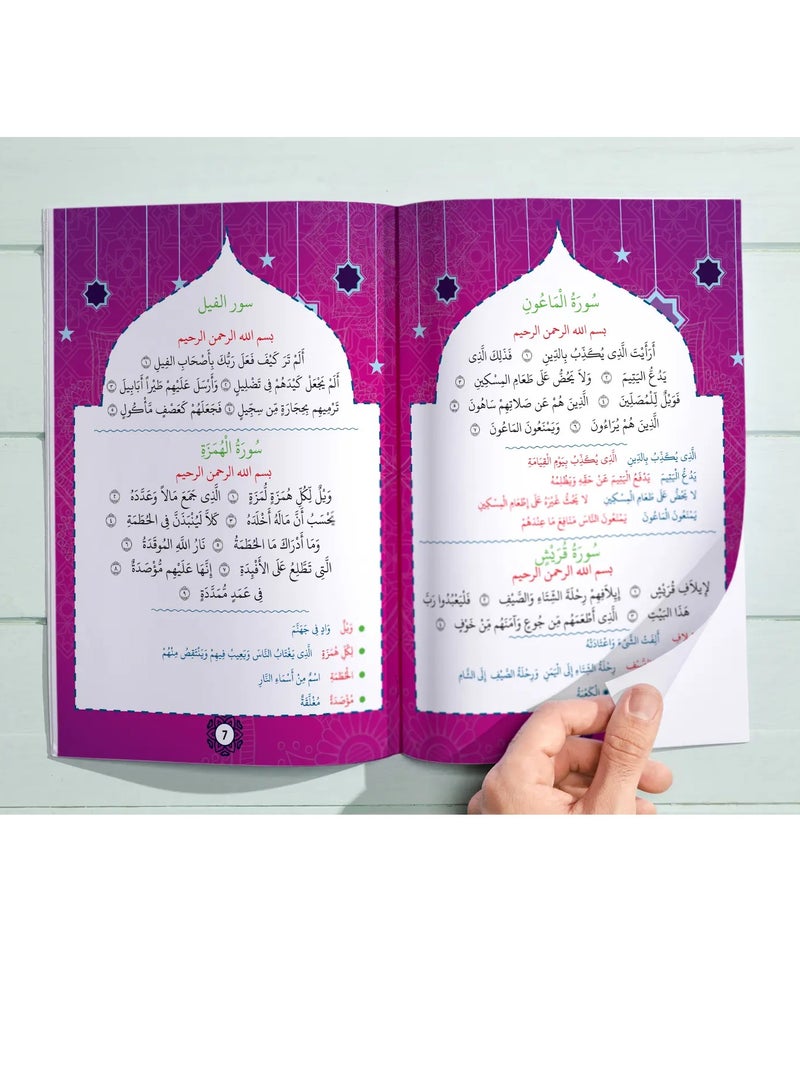 سُورَةُ الْمَاعُونِ
بسم الله الرحمن الرحيم
أَرَأَيْتَ الَّذِى يُكَذِّبُ بِالدِّينِ ١ فَذَلِكَ الَّذِى
يَدُعُّ الْيَتِيمَ ٢ وَلاَ يَحُضُّ عَلَى طَعَامِ الْمِسْكِينِ ٣
فَوَيْلٌ لِّلْمُصَلِّينَ ٤ الَّذِينَ هُمْ عَن صَلاَتِهِمْ سَاهُونَ ٥
الَّذِينَ هُمْ يُرَاءُونَ ٦ وَيَمْنَعُونَ الْمَاعُونَ ٧
الَّذِى يُكَذِّبُ بِالدِّينِ الَّذِى يُكَذِّبُ بِيَوْمِ الْقِيَامَةِ
يَدُعُّ الْيَتِيمَ يَدْفَعُ الْيَتِيمَ عَنْ حَقِّهِ وَيَظْلِمُهُ
لا يَحُضُّ عَلَى طَعَامِ الْمِسْكِينِ لا يَحُثُّ غَيْرَهُ عَلَى إِطْعَامِ الْمِسْكِينِ
يَمْنَعُونَ الْمَاعُونَ يَمْنَعُونَ النَّاسَ مَنَافِعَ مَا عِنْدَهُمْ
سُورَةُ قُرَيْشٍ
بسم الله الرحمن الرحيم
لإِيلاَفِ قُرَيْشٍ ١ إِيلاَفِهِمْ رِحْلَةَ الشِّتَاءِ وَالصَّيْفِ ٢ فَلْيَعْبُدُوا رَبَّ
هَذَا الْبَيْتِ ٣ الَّذِى أَطْعَمَهُم مِّن جُوعٍ وَآمَنَهُم مِّنْ خَوْفٍ ٤
أَلِفَتُ الشَّىْءَ وَاعْتَادَتْهُ
رِحْلَةُ الشِّتَاءِ إِلَى الْيَمَنِ وَرِحْلَةُ الصَّيْفِ إِلَى الشَّامِ
الْكَعْبَةُ
سور الفيل
بسم الله الرحمن الرحيم
أَلَمْ تَرَ كَيْفَ فَعَلَ رَبُّكَ بِأَصْحَابِ الْفِيلِ ١
أَلَمْ يَجْعَلْ كَيْدَهُمْ فِى تَضْلِيلٍ ٢ وَأَرْسَلَ عَلَيْهِمْ طَيْرًا أَبَابِيلَ ٣
تَرْمِيهِم بِحِجَارَةٍ مِّن سِجِّيلٍ ٤ فَجَعَلَهُمْ كَعَصْفٍ مَّأْكُولٍ ٥
سُورَةُ الْهُمَزَةِ
بسم الله الرحمن الرحيم
وَيْلٌ لِّكُلِّ هُمَزَةٍ لُّمَزَةٍ ١ الَّذِى جَمَعَ مَالاً وَعَدَّدَهُ ٢
يَحْسَبُ أَنَّ مَالَهُ أَخْلَدَهُ ٣ كَلاَّ لَيُنْبَذَنَّ فِى الْحُطَمَةِ ٤
وَمَا أَدْرَاكَ مَا الْحُطَمَةُ ٥ نَارُ اللَّهِ الْمُوقَدَةُ ٦
الَّتِى تَطَّلِعُ عَلَى الأَفْئِدَةِ ٧ إِنَّهَا عَلَيْهِم مُّؤْصَدَةٌ ٨
فِى عَمَدٍ مُمَدَّدَةٍ ٩
وَيْلٌ وَادٍ فِى جَهَنَّمَ
لِكُلِّ هُمَزَةٍ الَّذِى يَغْتَابُ النَّاسَ وَيَعِيبُ فِيهِمْ وَيَنْتَقِصُ مِنْهُمْ
الْحُطَمَةِ اسْمٌ مِنْ أَسْمَاءِ النَّارِ
مُؤْصَدَةٌ مُغْلَقَةٌ
7